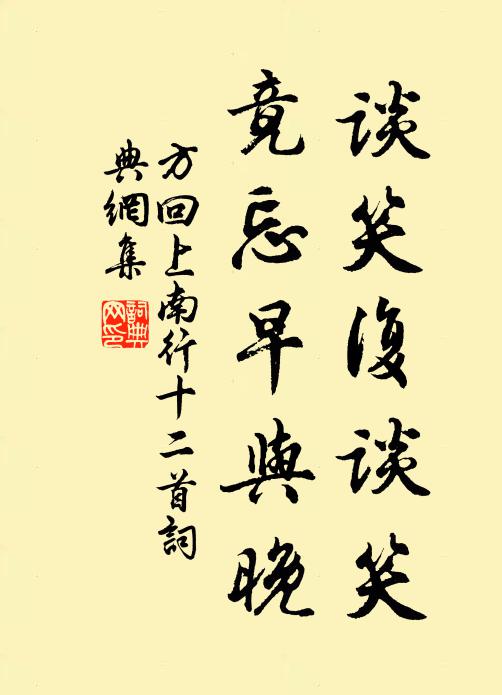 谈笑復谈笑
竟忘早與晚
方回上南行十二首詞
典網集
詞典
网印